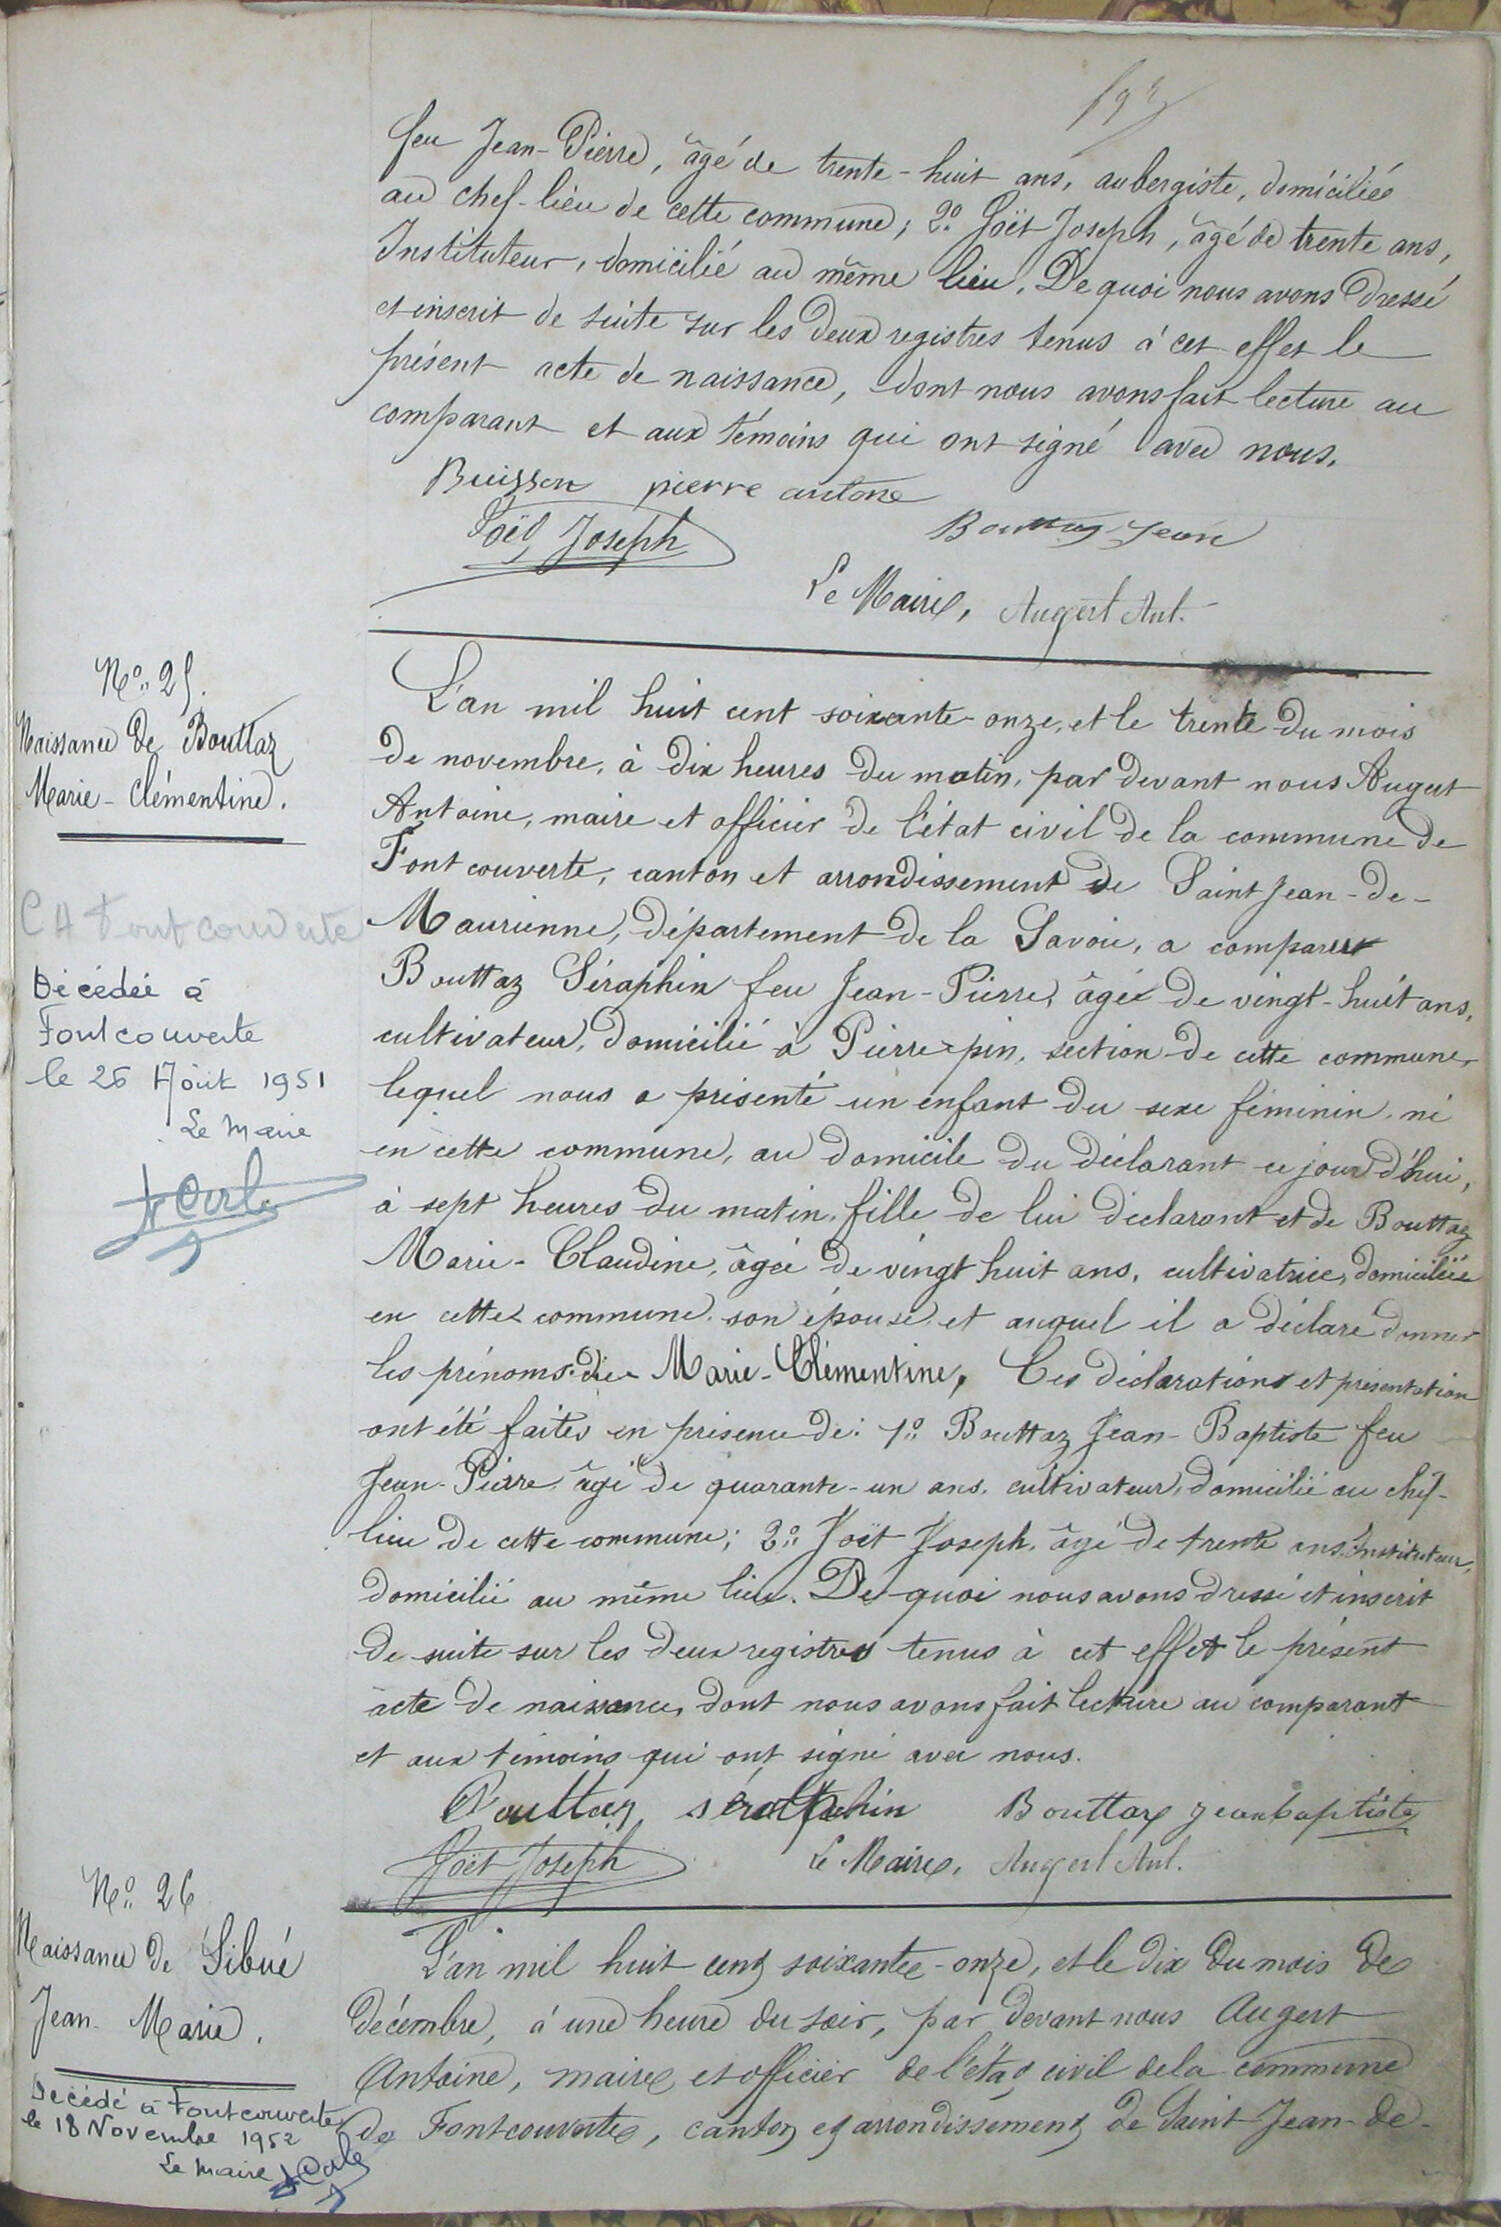 feu Jean-Pierre, âgé de trente-huit ans, aubergiste, domiciliée
au chef-lieu de cette commune; 2º Joët Joseph, âgé de trente ans,
Instituteur, domicilié au même lieu. De quoi nous avons dressé
et inscrit de suite sur les deux registres tenus à cet effet le
présent acte de naissance, dont nous avons fait lecture au
comparant et aux témoins qui ont signé avec nous.
Buisson pierre antone
Bouttaz Jean
Joët Joseph
Le Maire, Augert Ant.
Nº 25.
Naissance de Bouttaz
Marie-Clémentine.
CH Fontcouverte
Décédée à
Fontcouverte
le 26 Août 1951
Le Maire
L'an mil huit cent soixante-onze, et le trente du mois
de novembre, à dix heures du matin, par devant nous Augert
Antoine, maire et officier de l'état civil de la commune de
Fontcouverte, canton et arrondissement de Saint Jean-de-
Maurienne, département de la Savoie, a comparu
Bouttaz Séraphin feu Jean-Pierre, âgé de vingt-huit ans,
cultivateur, domicilié à Pierrepin, section de cette commune,
lequel nous a présenté un enfant du sexe féminin, né
en cette commune, au domicile du déclarant ce jour d'hui,
à sept heures du matin, fille de lui déclarant et de Bouttaz
Marie-Claudine, âgée de vingt huit ans, cultivatrice, domiciliée
en cette commune, son épouse, et auquel il a déclaré donner
les prénoms de Marie-Clémentine. Ces déclarations et présentation
ont été faites en présence de: 1º Bouttaz Jean-Baptiste feu
Jean-Pierre âgé de quarante-un ans, cultivateur, domicilié au chef-
lieu de cette commune; 2º Joët Joseph, âgé de trente ans, Instituteur,
domicilié au même lieu. De quoi nous avons dressé et inscrit
de suite sur les deux registres tenus à cet effet le présent
acte de naissance, dont nous avons fait lecture au comparant
et aux témoins qui ont signé avec nous.
Bouttaz séraphin Bouttaz jeanbaptiste
Joët Joseph Le Maire, Augert Ant.
Nº 26
Naissance de Sibué
Jean-Marie.
Décédé à Fontcouverte
le 18 Novembre 1952
Le Maire
L'an mil huit cent soixante-onze, et le dix du mois de
décembre, à une heure du soir, par devant nous Augert
Antoine, maire et officier de l'état civil de la commune
de Fontcouverte, canton et arrondissement de Saint-Jean-de-